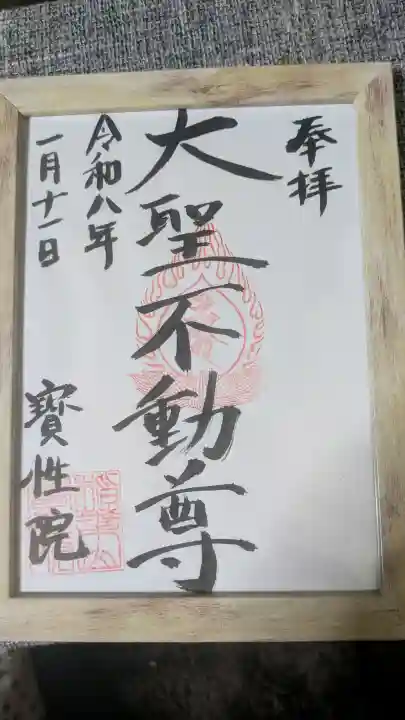 奉拝
大聖不動尊
令和八年
一月十一日
寳性院